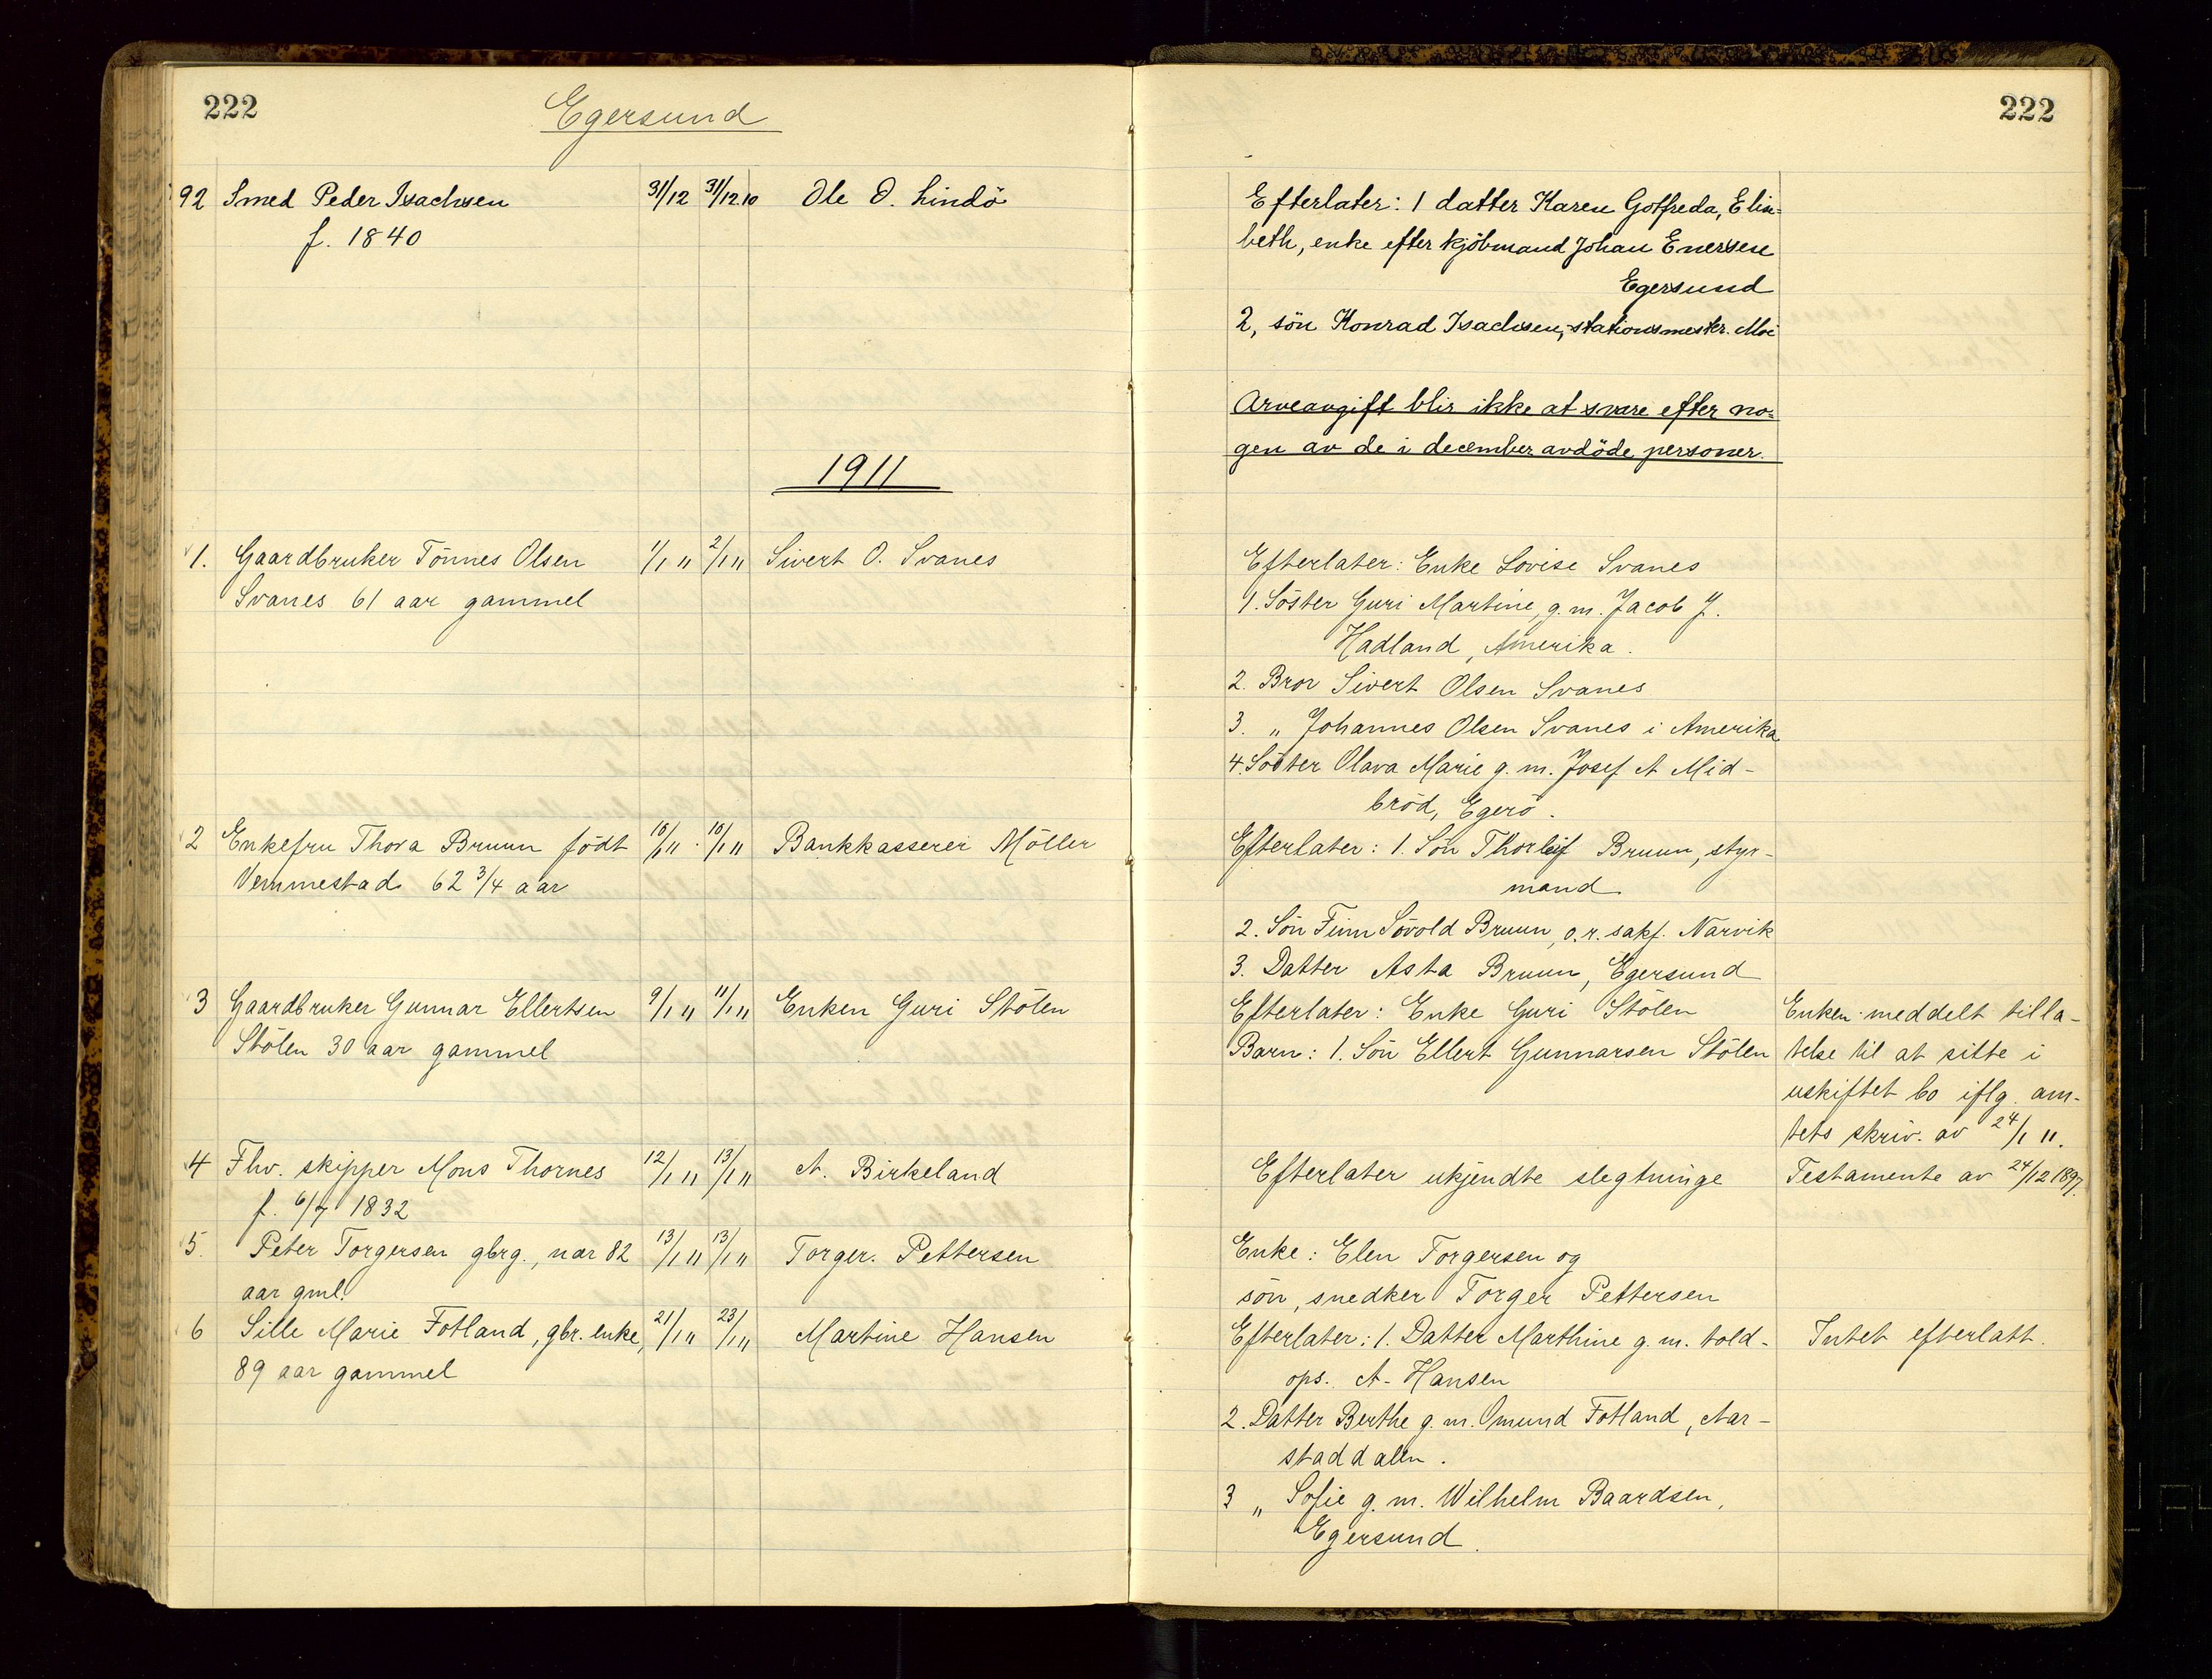 222
Egersund
92 Smed Peder Isachsen 31/12 31/12.10 Ole O. Lindö
f. 1840
1911
1. Gaardbruker Tönnes Olsen 1/1 11 2/1 11 Sivert O. Svanes
Svanes 61 aar gammel
2 Enkefru Thora Bruun födt 10/1 11 10/1 11 Bankkasserer Möller
Vemmestad 62 3/4 aar
3 Gaardbruker Gunnar Ellertsen 9/1 11 11/1 11 Enken Guri Stölen
Stölen 30 aar gammel
4 Fhv. skipper Mons Thornes 12/1 11 13/1 11 A. Birkeland
f. 6/7 1832
5. Peter Torgersen gbrg., nær 82 13/1 11 13/1 11 Torger. Pettersen
aar gml.
6 Sille Marie Fotland, gbr. enke, 21/1 11 23/1 11 Martine Hansen
89 aar gammel
222
Efterlater: 1 datter Karen Gotfreda, Elin=
beth, enke efter kjöbmand Johan Enersen
Egersund
2, sön Konrad Isachsen, stationsmester. Moi
Arveavgift blir ikke at svare efter no=
gen av de i december avdöde personer.
Efterlater: Enke Lovise Svanes
1. Söster Guri Martine, g. m. Jacob J.
Hadland, Amerika.
2. Bror Sivert Olsen Svanes
3. " Johannes Olsen Svanes i Amerika
4. Söster Olava Marie g. m. Josef A Mid-
bröd, Egerö.
Efterlater: 1. Sön Thorleif Bruun, styr-
mand
2. Sön Finn Sövold Bruun, o.r. sakf. Narvik
3. Datter Asta Bruun, Egersund
Efterlater: Enke Guri Stölen Enken meddelt tilla-
Barn: 1. Sön Ellert Gunnarsen Stölen telse til at sitte i
uskiftet bo iflg. am-
tets skriv. av 24/1 11.
Efterlater ukjendte slegtninge Testamente av 24/12 1897.
Enke: Elen Torgersen og
sön, snedker Torger Pettersen
Efterlater: 1. Datter Marthine g. m. told- Intet efterlatt.
ops. A. Hansen
2. Datter Berthe g. m. Omund Fotland, Aar-
staddalen.
3 " Sofie g. m. Wilhelm Baardsen,
Egersund.